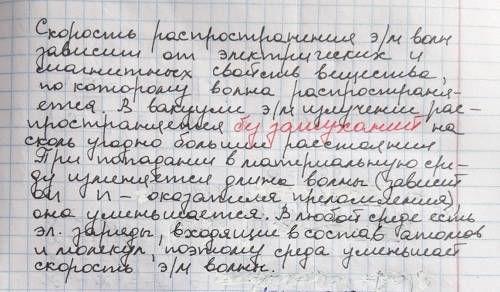 Скорость распространения э/м волн
зависит от электрических и
магнитных свойств вещества,
по которому волна распространя-
ется. В вакууме э/м излучение рас-
пространяется бу затуханий на
сколь угодно большие расстояния
При попадании в материальную сре-
ду изменяется длина волны (зависит
от n - показателя преломления),
она уменьшается. В любой среде есть
эл. заряды, входящие в состав атомов
и молекул, поэтому среда уменьшает
скорость э/м волны.